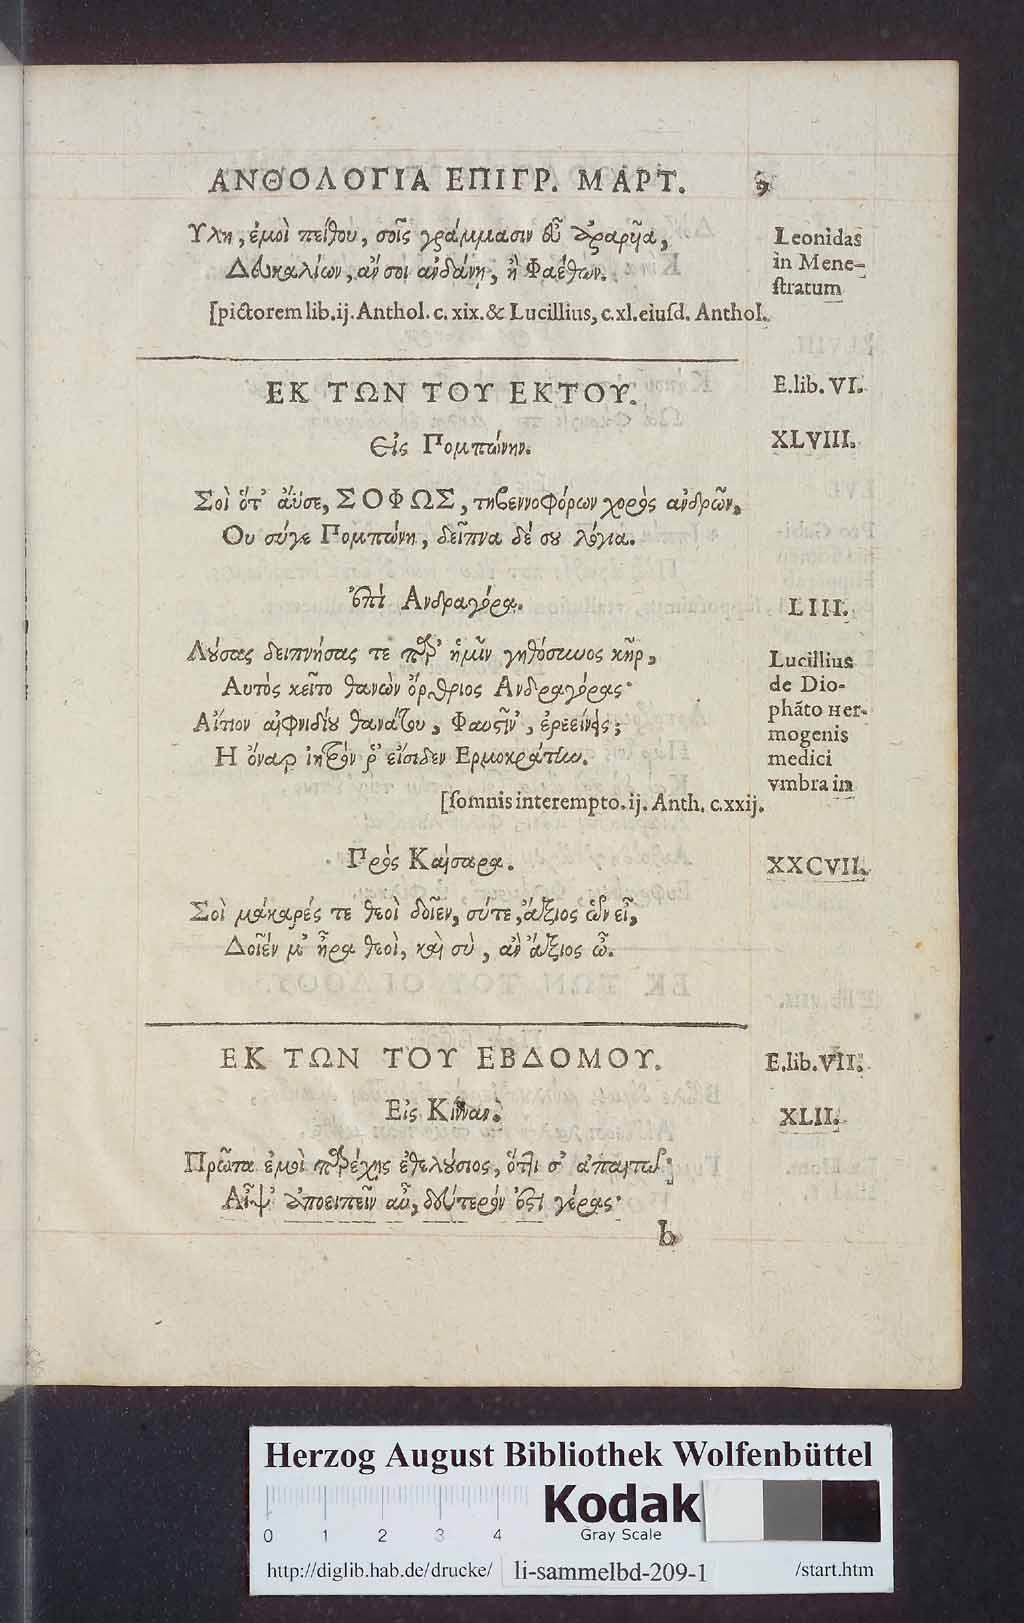 ΑΝΘΟΛΟΓΙΑ ΕΠΙΓΡ. ΜΑΡΤ. 9
Υλη, ἐμοὶ πείθου, σοῖς γράμμασιν εὖ ἀραρῆα,
Δευκαλίων, ἄν σοι ἁνδάνη, ἢ Φαέθων.
Leonidas
in Mene-
ſtratum
[pictorem lib.ij. Anthol. c. xix. & Lucillius, c.xl. eiuſd. Anthol.
ΕΚ ΤΩΝ ΤΟΥ ΕΚΤΟΥ.
E.lib. VI.
Εἰς Πομπώνην.
XLVIII.
Σοὶ ὅτ' ἄϋσε, ΣΟΦΩΣ, τηβεννοφόρων χορὸς ἀνδρῶν,
Ου σύγε Πομπώνη, δεῖπνα δέ σου λόγια.
ἐπὶ Ανδραγόρα.
LIII.
Λούσας δειπνήσας τε παρ' ἡμῖν γηθόσυνος κῆρ,
Αυτὸς κεῖτο θανὼν ὄρθριος Ανδραγόρας·
Αἴτιον αἰφνιδίου θανάτου, Φαυστῖν', ἐρεείνης;
Η ὄναρ ἰητρόν ῥ' εἴσιδεν Ερμοκράτην.
Lucillius
de Dio-
phāto Her-
mogenis
medici
vmbra in
[ſomnis interempto. ij. Anth. c.xxij.
Πρὸς Καίσαρα.
XXCVII.
Σοὶ μάκαρές τε θεοὶ δοῖεν, σύτε, ἄξιος ὧν εἶ,
Δοῖέν μ' ἦρα θεοὶ, καὶ σὺ, ἂν ἄξιος ὦ.
ΕΚ ΤΩΝ ΤΟΥ ΕΒΔΟΜΟΥ.
E.lib. VII.
Εἰς
XLII.
Πρῶτα ἐμοὶ παρέχης ἐθελούσιος, ὅττι σ'
Αἶψ' ἀποειπεῖν αὖ, δεύτερόν ἐστι γέρας·
b
Herzog August Bibliothek Wolfenbüttel
0 1 2 3 4
Kodak
Gray Scale
http://diglib.hab.de/drucke/ li-sammelbd-209-1 /start.htm